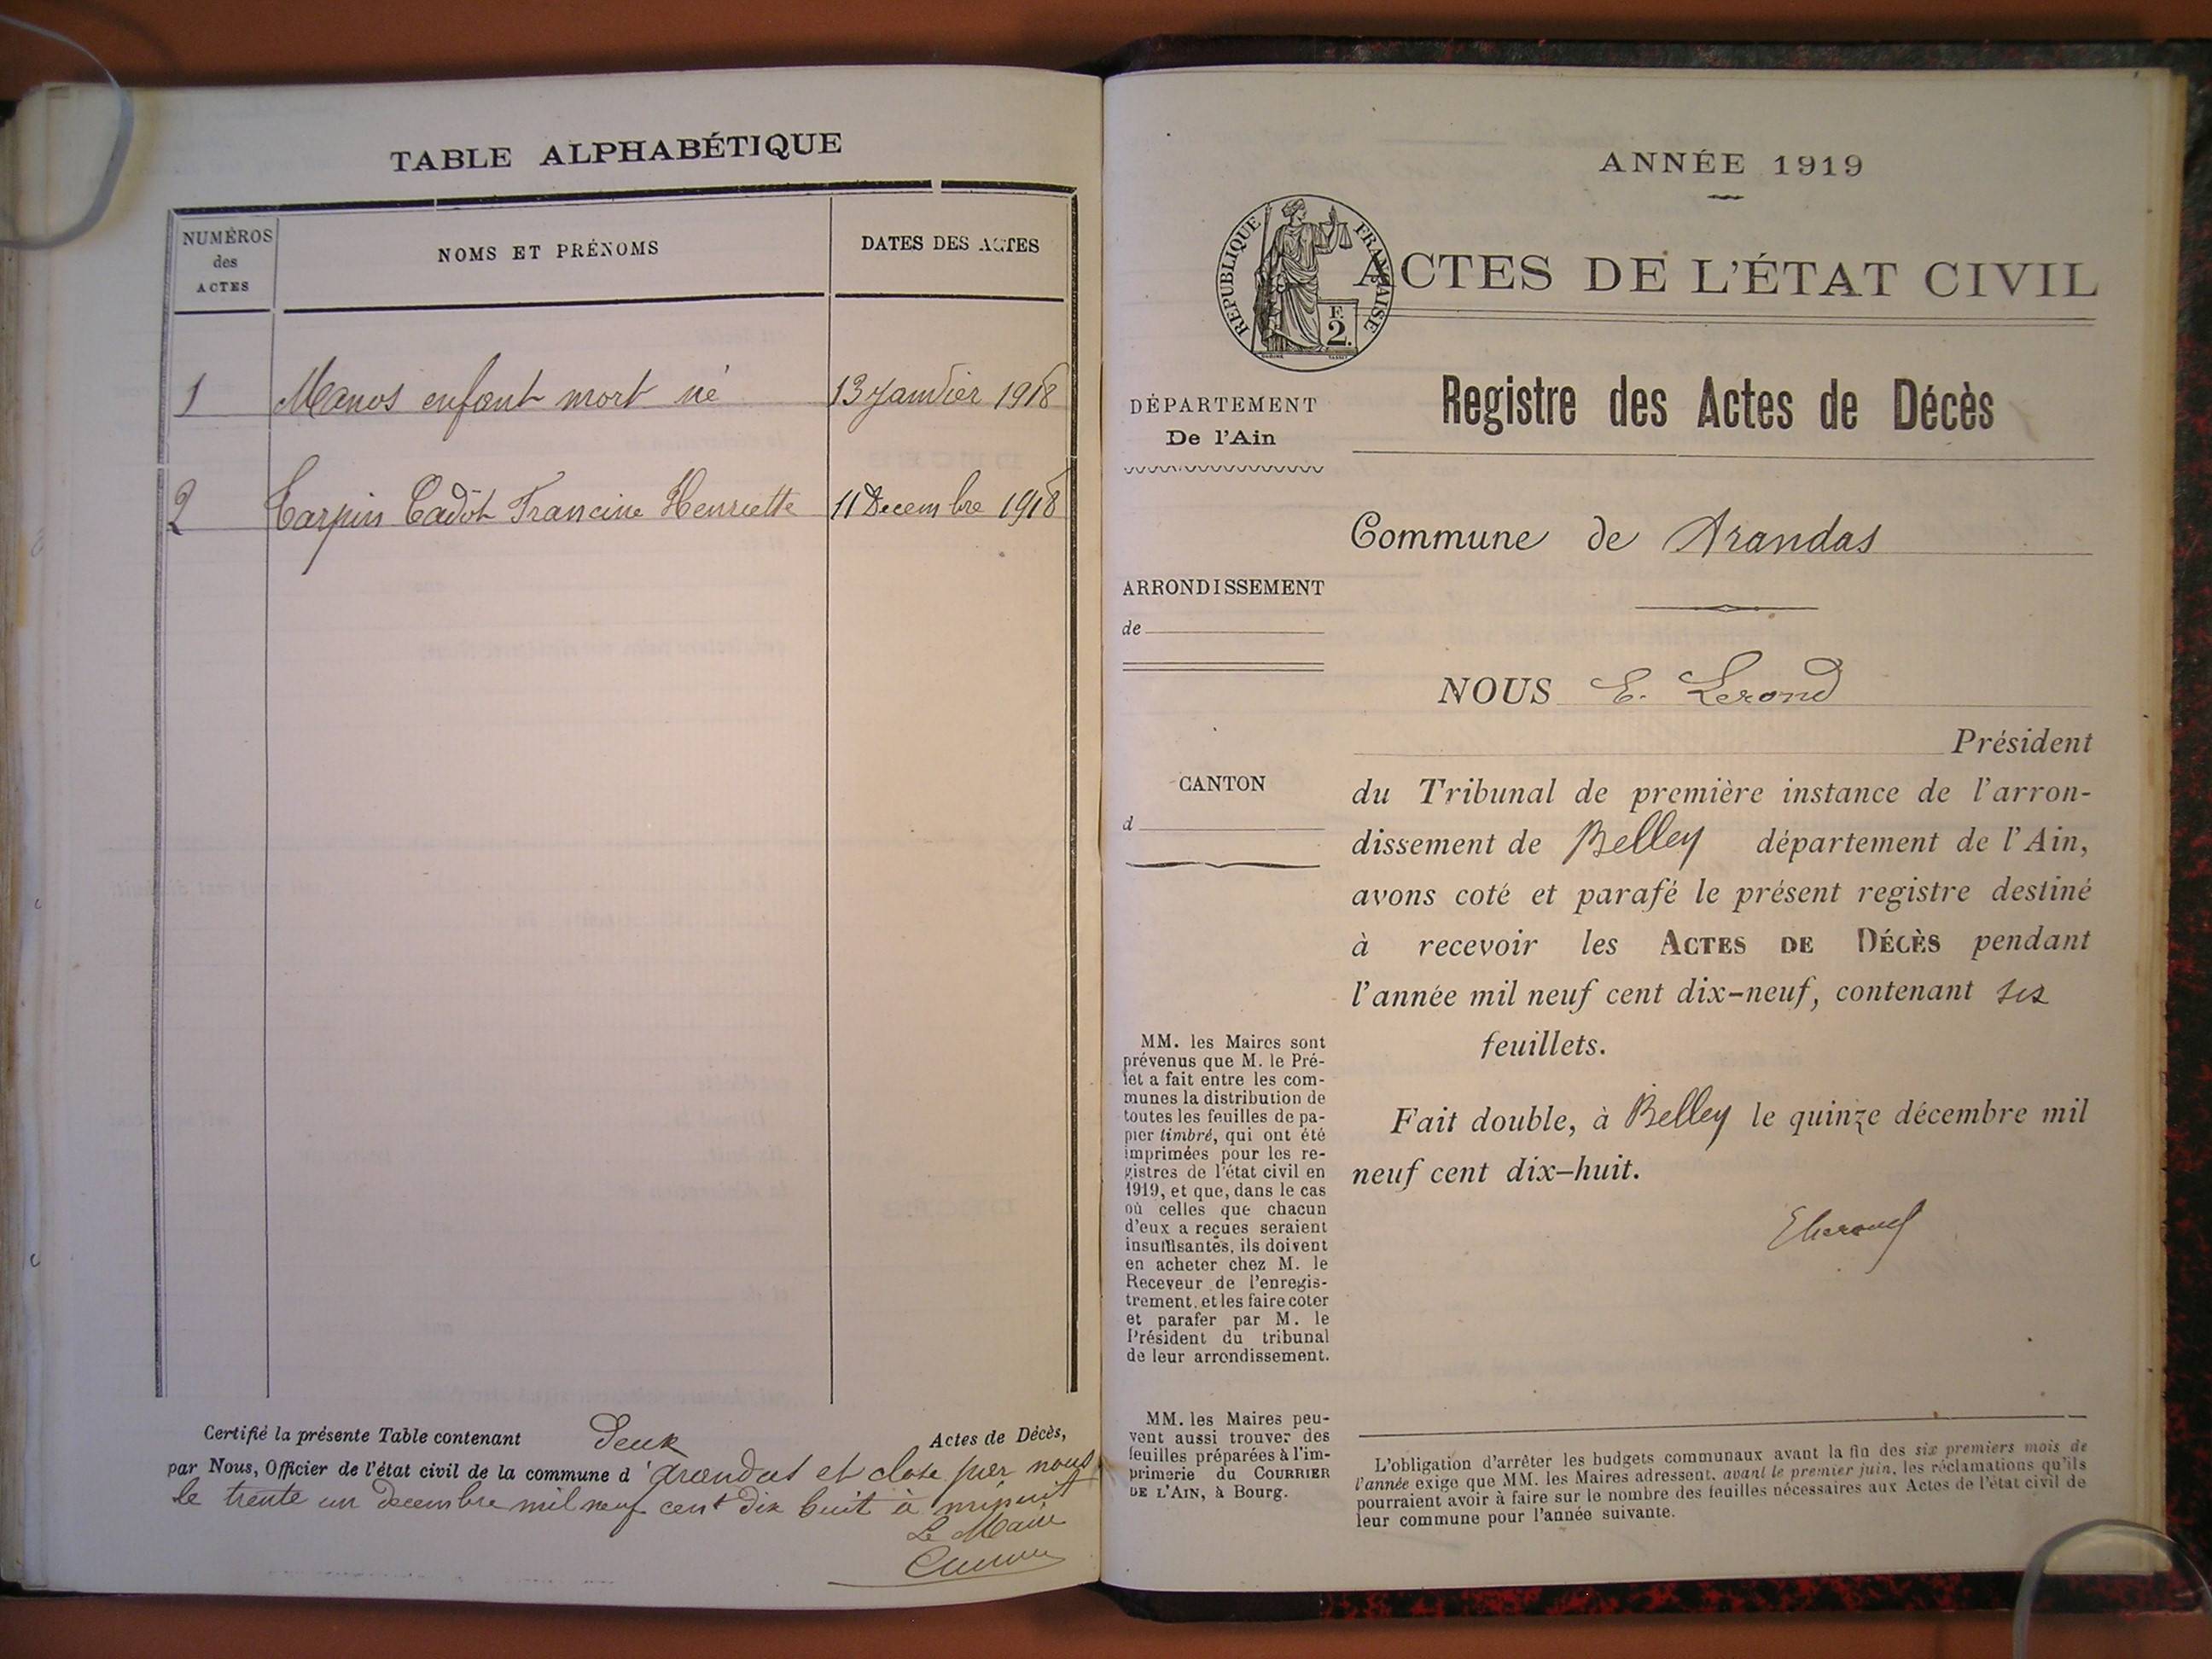 TABLE ALPHABÉTIQUE
NUMÉROS
des
ACTES
NOMS ET PRÉNOMS
DATES DES ACTES
1 Manos enfant mort né 13 Janvier 1918
2 Tarpin Cadot Francine Henriette 11 Decembre 1918
Certifié la présente Table contenant deux Actes de Décès,
par Nous, Officier de l'état civil de la commune d'Arandas et close par nous
le trente un decembre mil neuf cent dix huit à minuit
Le Maire
ANNÉE 1919
RÉPUBLIQUE FRANÇAISE
F.
2.
ACTES DE L'ÉTAT CIVIL
DÉPARTEMENT
De l'Ain
ARRONDISSEMENT
de
CANTON
d
MM. les Maires sont
prévenus que M. le Pré-
fet a fait entre les com-
munes la distribution de
toutes les feuilles de pa-
pier timbré, qui ont été
imprimées pour les re-
gistres de l'état civil en
1919, et que, dans le cas
où celles que chacun
d'eux a reçues seraient
insuffisantes, ils doivent
en acheter chez M. le
Receveur de l'enregis-
trement, et les faire coter
et parafer par M. le
Président du tribunal
de leur arrondissement.
MM. les Maires peu-
vent aussi trouver des
feuilles préparées à l'im-
primerie du COURRIER
DE L'AIN, à Bourg.
Registre des Actes de Décès
Commune de Arandas
NOUS E. Lerond
Président
du Tribunal de première instance de l'arron-
dissement de Belley département de l'Ain,
avons coté et parafé le présent registre destiné
à recevoir les ACTES DE DÉCÈS pendant
l'année mil neuf cent dix-neuf, contenant six
feuillets.
Fait double, à Belley le quinze décembre mil
neuf cent dix-huit.
ELerond
L'obligation d'arrêter les budgets communaux avant la fin des six premiers mois de
l'année exige que MM. les Maires adressent, avant le premier juin, les réclamations qu'ils
pourraient avoir à faire sur le nombre des feuilles nécessaires aux Actes de l'état civil de
leur commune pour l'année suivante.